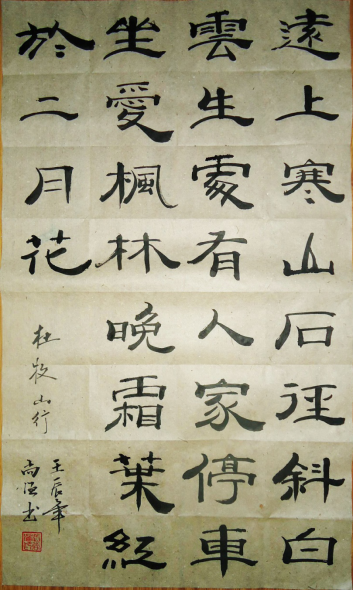 遠上寒山石徑斜白
雲生處有人家停車
坐愛楓林晚霜葉紅
於二月花
杜牧山行
壬辰年
書